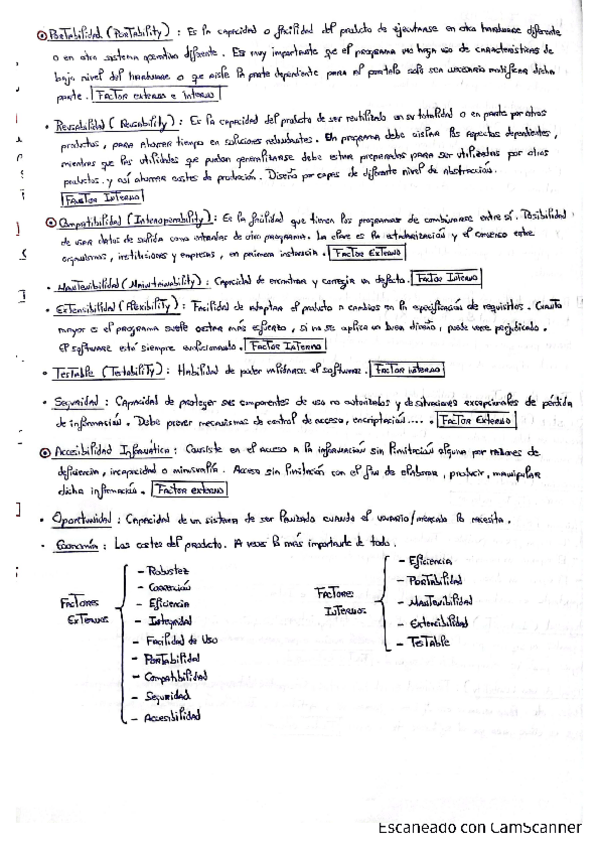 Portabilidad (Portability) : Es la capacidad o facilidad del producto de ejecutarse en otro hardware diferente
o en otro sistema operativo diferente. Es muy importante que el programa no haga uso de características de
bajo nivel del hardware o que aísle la parte dependiente para al portarlo solo sea necesario modificar dicha
parte. Factor externo e Interno
• Reusabilidad (Reusability) : Es la capacidad del producto de ser reutilizado en su totalidad o en parte por otros
productos, para ahorrar tiempo en soluciones redundantes. Un programa debe aislar los aspectos dependientes,
mientras que las utilidades que puedan generalizarse debe estar preparadas para ser utilizadas por otros
productos y así ahorrar costes de producción. Diseño por capas de diferente nivel de abstracción.
Factor Interno
Compatibilidad (Interoperability) : Es la facilidad que tienen los programas de combinarse entre sí. Posibilidad
de usar datos de salida como entradas de otro programa. La clave es la estandarización y el consenso entre
organismos, instituciones y empresas, en primera instancia. Factor Externo
• Mantenibilidad (Maintainability) : Capacidad de encontrar y corregir un defecto. Factor Interno
• Extensibilidad (Flexibility) : Facilidad de adaptar el producto a cambios en la especificación de requisitos. Cuanto
mayor es el programa suele costar más esfuerzo, si no se aplica un buen diseño, puede verse perjudicado.
El software está siempre evolucionando. Factor Interno
• Testable (Testability) : Habilidad de poder validarse el software. Factor interno
• Seguridad : Capacidad de proteger sus componentes de uso no autorizados y de situaciones excepcionales de pérdida
de información. Debe prever mecanismos de control de acceso, encriptación..... Factor Externo
Accesibilidad Informática : Consiste en el acceso a la información sin limitación alguna por razones de
deficiencia, incapacidad o minusvalía. Acceso sin limitación con el fin de elaborar, producir, manipular
dicha información. Factor externo
• Oportunidad : Capacidad de un sistema de ser lanzado cuando el usuario/mercado lo necesita.
• Economía : Los costes del producto. A veces lo más importante de todo.
Factores Externos
- Robustez
- Corrección
- Eficiencia
- Integridad
- Facilidad de Uso
- Portabilidad
- Compatibilidad
- Seguridad
- Accesibilidad
Factores Internos
- Eficiencia
- Portabilidad
- Mantenibilidad
- Extensibilidad
- Testable
Escaneado con CamScanner